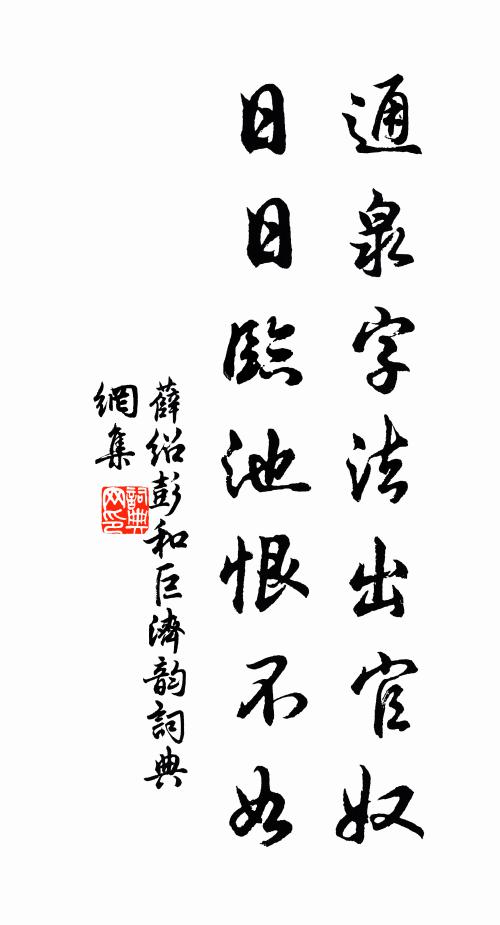 通泉字法出官奴
日日臨池恨不如
薛紹彭和巨濟韵詞典
網集
詞典网印